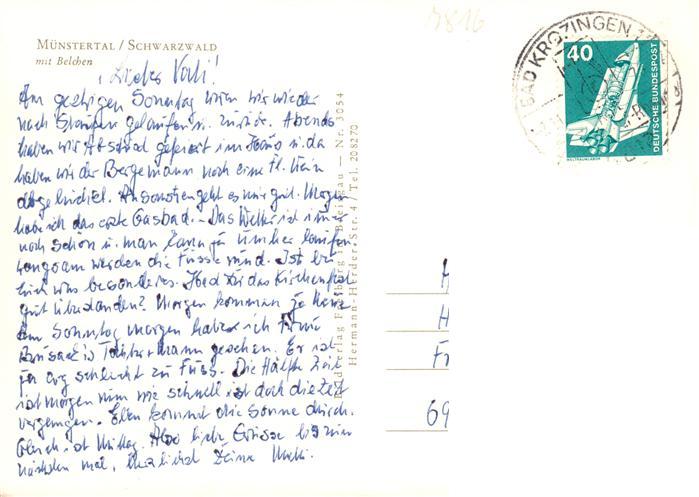 7816
MÜNSTERTAL / SCHWARZWALD
mit Belchen
Liebes
Am gestrigen Sonntag waren wir wieder
nach Staufen gelaufen u. zurück. Abends
haben wir Abschied gefeiert im Haus u. da
haben wir der Bergemann noch eine Fl. Wein
Ansonsten geht es mir gut. Morgen
habe ich das erste Gasbad. Das Wetter ist immer
noch schön u. man kann ja umher laufen
langsam werden die Füsse rund. Ist bei
Euch was besonderes. Habt Ihr das Kirchenfest
gut überstanden? Morgen kommen ja
Am Sonntag morgen habe ich
gesehen. Er ist
ja arg schlecht zu Fuss. Die Hälfte Zeit
ist morgen rum wie schnell ist doch die Zeit
vergangen. Eben kommt die Sonne durch.
Gleich ist Mittag. Also liebe Grüsse bis zum
nächsten mal, herzlichst Deine
Verlag Freiburg im Breisgau — Nr. 3054
Hermann-Herder-Str. 4 / Tel. 208270
BAD KROZINGEN
40
DEUTSCHE BUNDESPOST
WELTRAUMLABOR
H
H
Fr
69